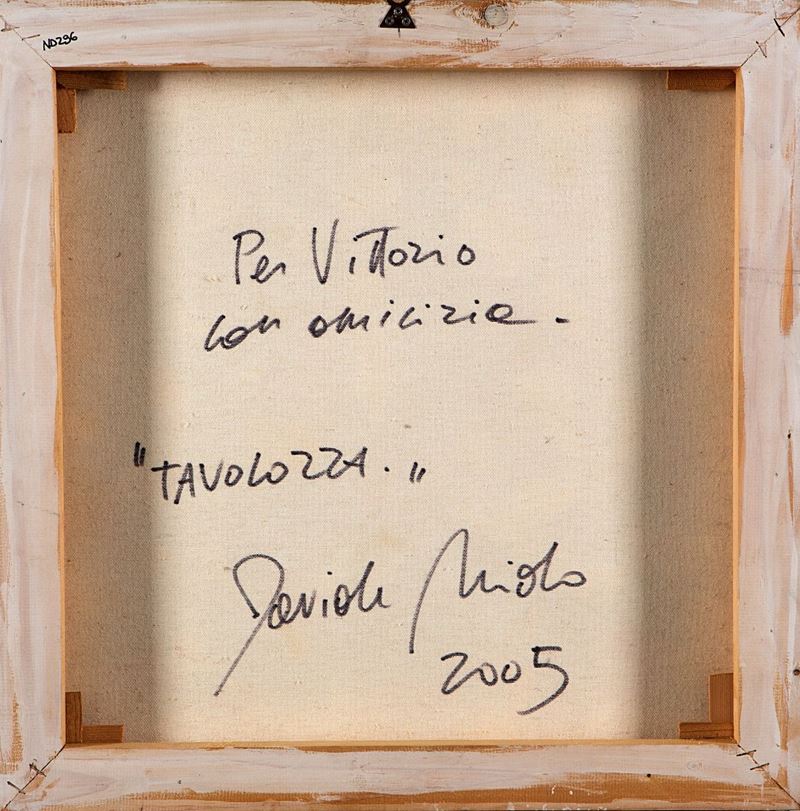 ND296
Per Vittorio
con amicizia.
"TAVOLOZZA."
Davide Nido
2005